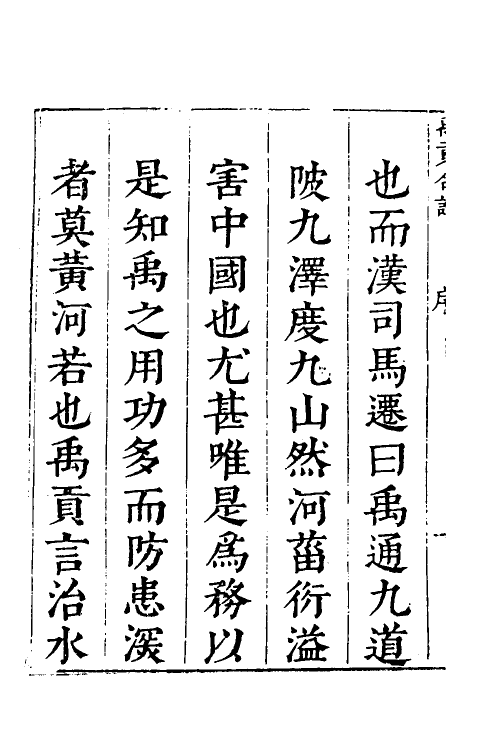 禹貢合註 序 一
也而漢司馬遷曰禹通九道
陂九澤度九山然河菑衍溢
害中國也尤甚唯是爲務以
是知禹之用功多而防患深
者莫黃河若也禹貢言治水